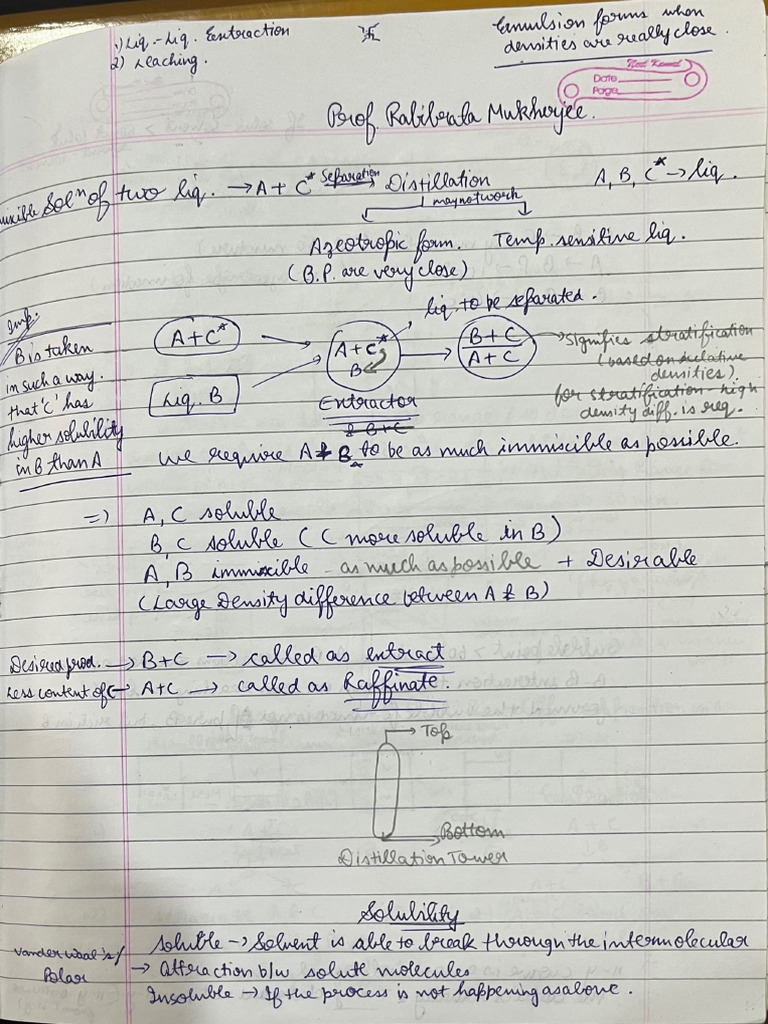 1) Liq.-Liq. Eextraction
2) Leaching.
Emulsion forms when
densities are really close.
Date
Page
Prof. Rabibrata Mukherjee.
Solⁿ of two liq. → A + C* Separation → Distillation
A, B, C* → liq.
may not work
Azeotropic form. Temp. sensitive liq.
(B.P. are very close)
liq. to be separated.
Imp.
B is taken
in such a way.
that 'c' has
higher solubility
in B than A
A + C*
Liq. B
A + C*
B
Extractor
& B+C
B + C
A + C
→ signifies stratification
(based on relative
densities).
for stratification - high
density diff. is req.
We require A & B to be as much immiscible as possible.
⇒ A, C soluble
B, C soluble (C more soluble in B)
A, B immiscible - as much as possible + Desirable
(Large Density difference between A & B)
Desired prod. → B+C → called as extract
Less content of C → A+C → called as Raffinate.
→ Top
→ Bottom
Distillation Tower
Solubility
Vander waal's/
Polar
soluble → Solvent is able to break through the intermolecular
→ attraction b/w solute molecules
Insoluble → If the process is not happening as above.